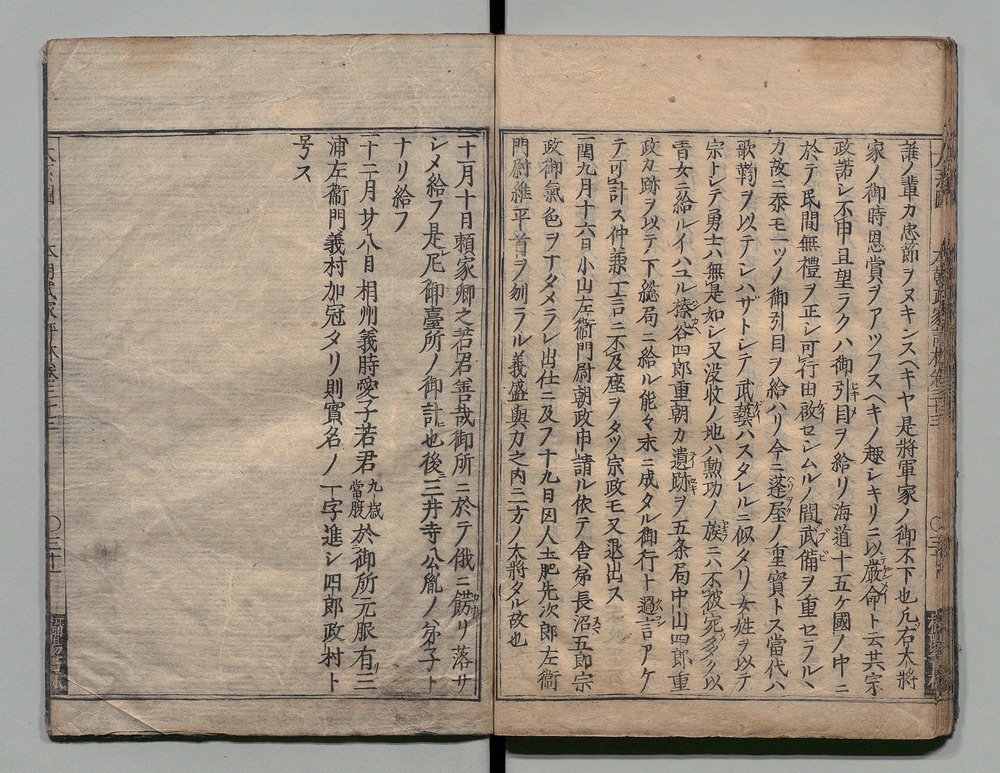 誰ノ輩カ忠節ヲヌキンスヘキヤ是將軍家ノ御不下也凡右大將
家ノ御時恩賞ヲアツフスヘキノ趣シキリニ以厳命ト云共宗
政諾シ不申且望ラクハ御引目ヲ給リ海道十五ケ國ノ中ニ
於テ民間無禮ヲ正シ可行由啟セシムルノ間武備ヲ重セラルヽ
カ故ニ忝モ一ツノ御引目ヲ給ハリ今ニ蓬屋ノ重寳トス當代ハ
歌鞠ヲ以テシハザトシテ武藝ハスタレルニ似タリ女姓ヲ以テ
宗トシテ勇士六無是如シ又没收ノ地ハ勲功ノ族ニハ不被宛多ク以
青女ニ給ルイハユル榛谷四郎重朝カ遺跡ヲ五条局中山四郎重
政カ跡ヲ以テ下総局ニ給ル能々末ニ成タル御行ト過言アケ
テ可計ス仲兼一言ニ不及座ヲタツ宗政モ又退出ス
一閏九月十六日小山左衞門尉朝政申請ル依テ舎弟長沼五郎宗
政御氣色ヲナタメラレ出仕ニ及フ十九日囚人土肥先次郎左衞
門尉維平首ヲ刎ラル義盛與力之内三方ノ大將タル故也
一十一月十日頼家卿之若君善哉御所ニ於テ俄ニ餝リ落サ
シメ給フ是レ尼御臺所ノ御計也後三井寺公胤ノ弟子ト
ナリ給フ
一十二月廿八日相州義時愛子若君九歳當腹於御所元服有リ三
浦左衞門義村加冠タリ則實名ノ一字進シ四郎政村ト
号ス